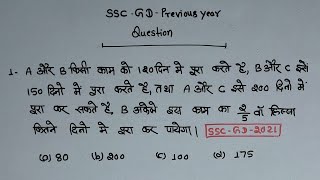 SSC-GD-Previous year
Question
1- A और B किसी काम को 120 दिन में पूरा करते हैं, B और C इसे
150 दिनों में पूरा करते हैं, तथा A और C इसे 200 दिनों में
पूरा कर सकते हैं. B अकेले इस काम का 2/5 वॉ हिस्सा
कितने दिनों में पूरा कर पायेगा। SSC-GD-2021
(a) 80 (b) 200 (c) 100 (d) 175